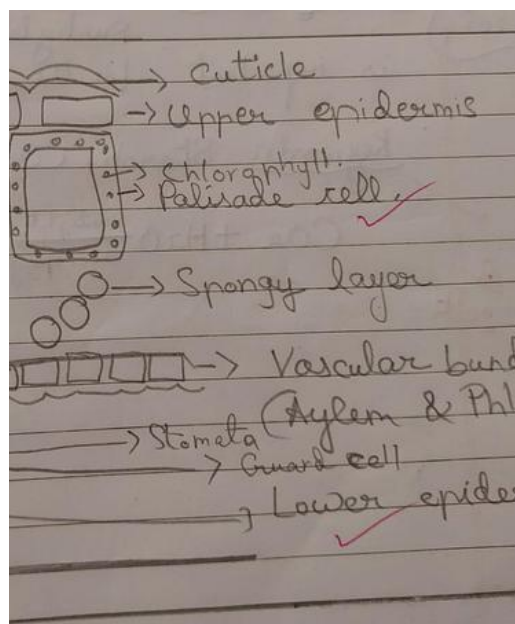 cuticle
Upper epidermis
chlorophyll.
Palisade cell.
Spongy layer
Vascular bund
(Xylem & Phl
Stomata
Guard cell
Lower epider